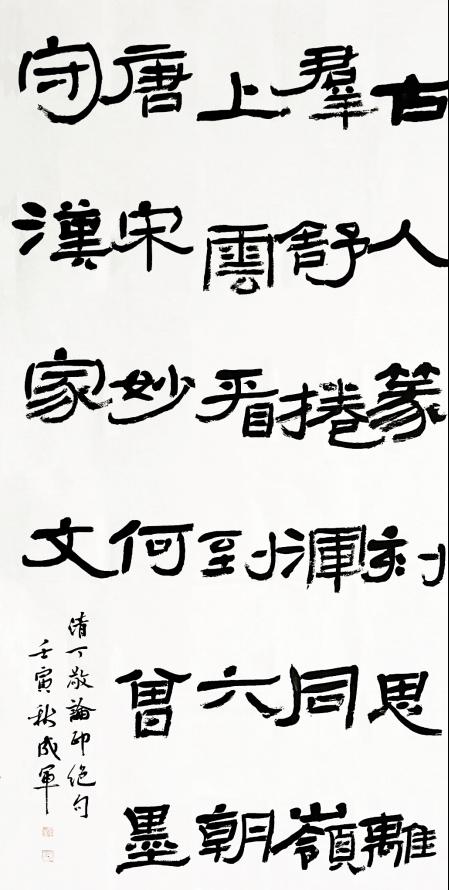 古人篆刻思離
羣舒捲渾同嶺
上雲看到六朝
唐宋妙何曾墨
守漢家文
清丁敬論印絕句
壬寅秋成軍